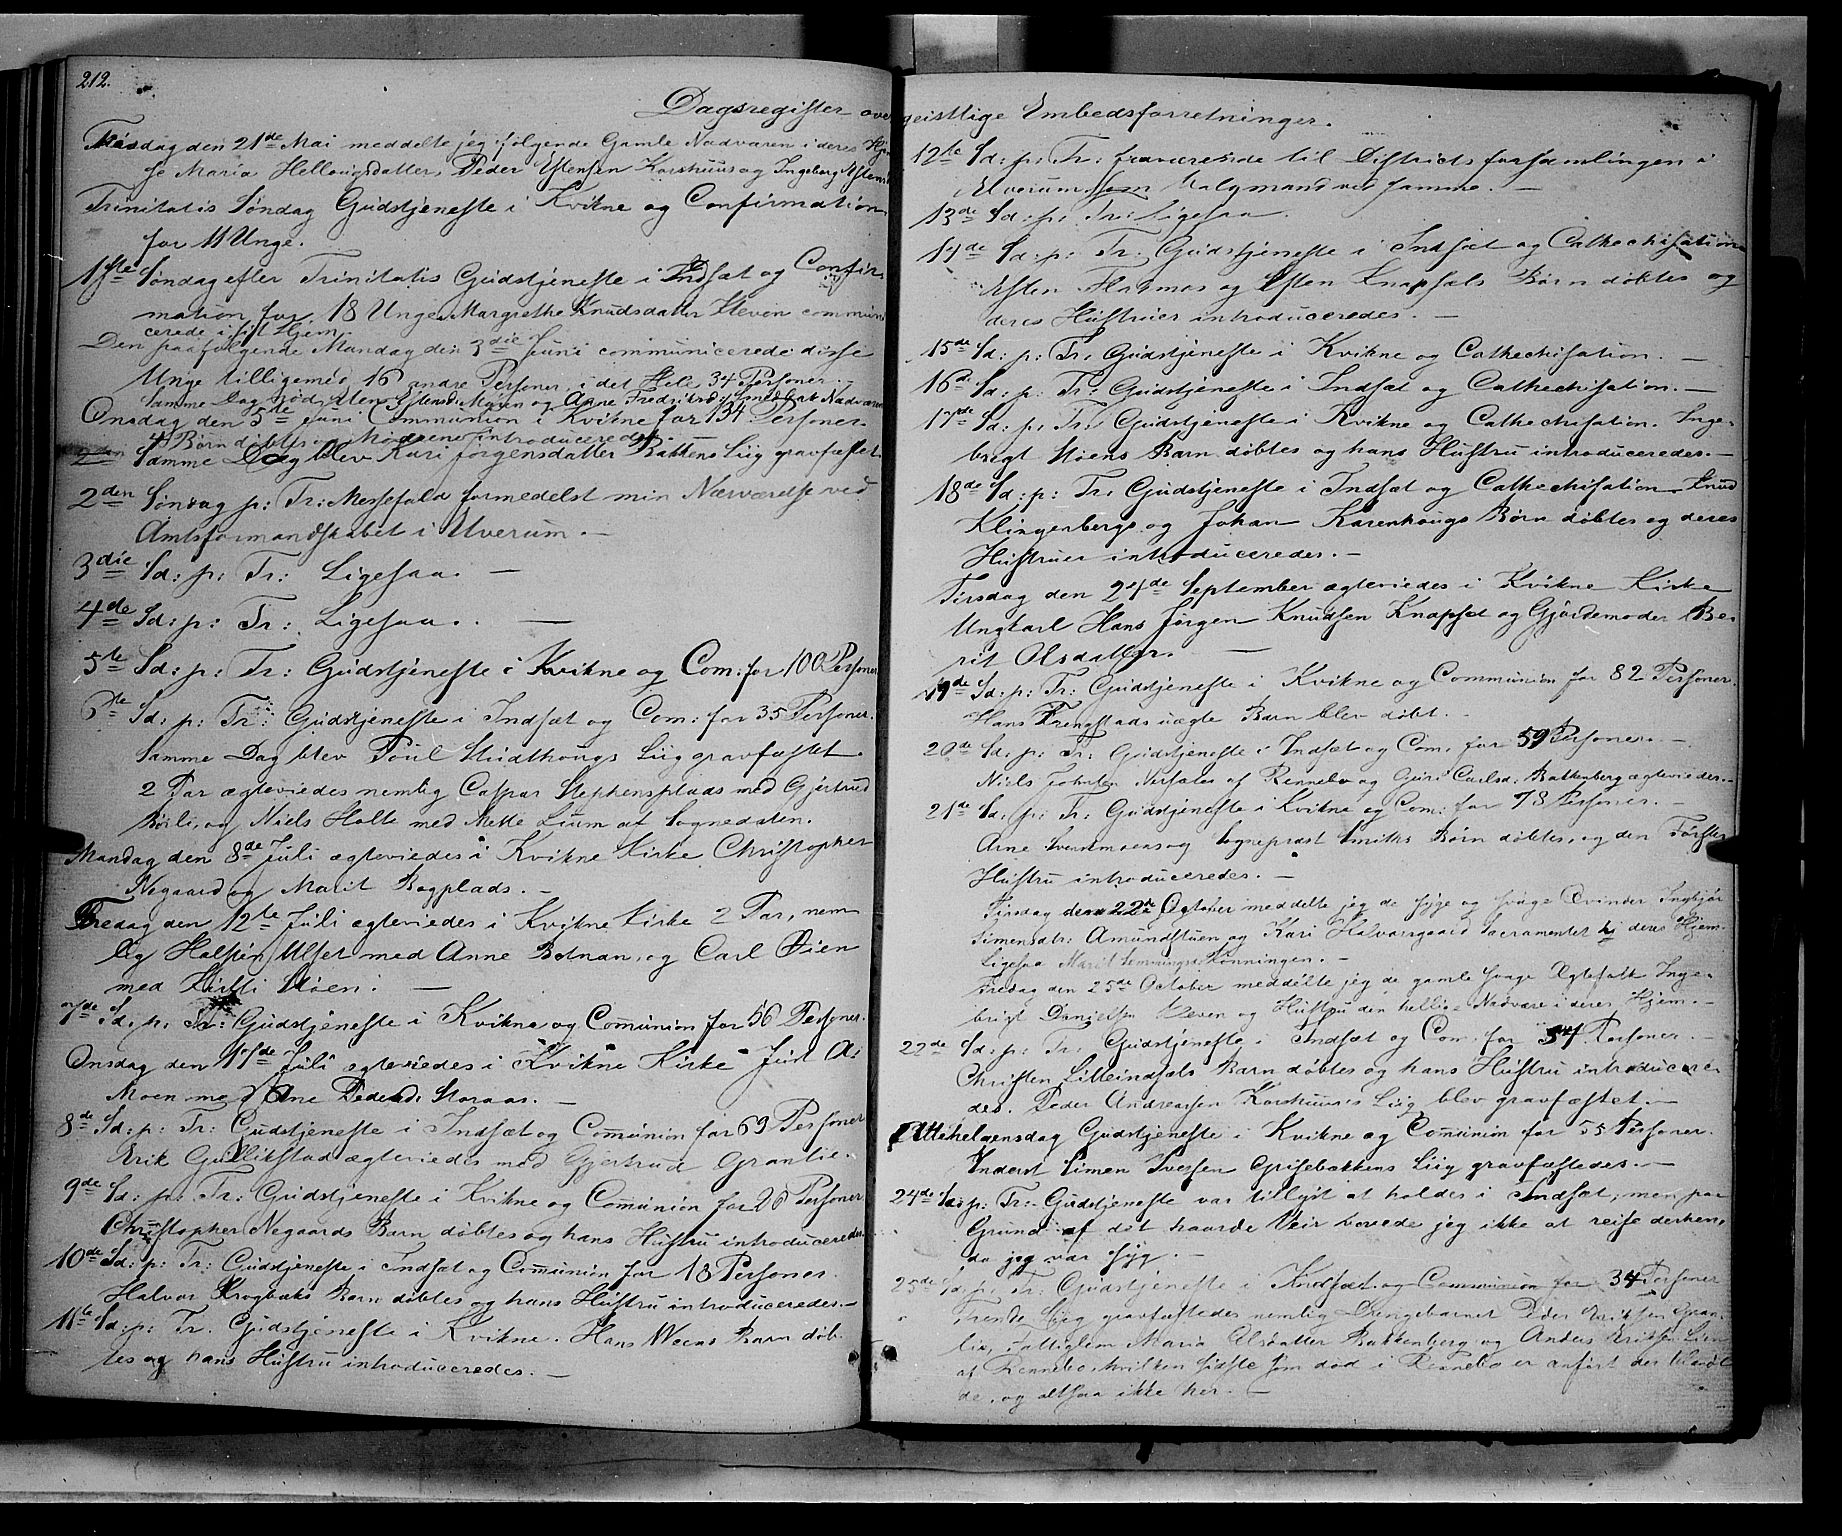 212.
Dagsregister over geistlige Embedsforretninger.
Tirsdag den 21de Mai meddelte jeg følgende Gamle Nadveren i deres Hjem
Maria Hellougsdatter, Peder Estensen Korshuus og Ingeborg Estens
Trinitatis Søndag Gudstjeneste i Kvikne og Confirmation
for 11 Unge.
1ste Søndag efter Trinitatis Gudstjeneste i Indset og Confir-
mation for 18 Unge. Margrethe Knudsdatter Steven communi
cerede i sit Hjem.
Den paafølgende Mandag den 3die Juni communicerede disse
Unge tilligemed 16 andre Personer, i det Hele 34 Personer.
Samme Dag nød Esten Estens: Moen og Anne Fredriksd: Smedbak Nadveren
Onsdag den 5te Juni Communion i Kvikne for 134 Personer.
4 Børn døbtes og Mødrene introduceredes.
Samme Dag blev Kari Jørgensdatter Bakkens Liig gravfæstet.
2den Søndag p: Tr: Messefald formedelst min Nærværelse ved
Amtsformandskabet i Elverum. —
3die Sd: p: Tr: Ligesaa. —
4de Sd: p: Tr: Ligesaa. —
5te Sd: p: Tr: Gudstjeneste i Kvikne og Com: for 100 Personer
6te Sd: p: Tr: Gudstjeneste i Indset og Com: for 35 Personer.
Samme Dag blev Poul Studthougs Liig gravfæstet.
2 Par ægteviedes nemlig Caspar Stephensplads med Gjertrud
Børli, og Niels Holte med Mette Lium af Sognedalen.
Mandag den 8de Juli ægteviedes i Kvikne Kirke Christopher
Negaard og Marit Bogplads. —
Fredag den 12te Juli ægteviedes i Kvikne Kirke 2 Par, nem
lig Halsten Ulset med Anne Botnan, og Carl Øien
med Kirsti Støen. —
7de Sd: p: Tr: Gudstjeneste i Kvikne og Communion for 56 Personer.
Onsdag den 17de Juli ægteviedes i Kvikne Kirke
Moen med Ane Pedersd: Storaas. —
8de Sd: p: Tr: Gudstjeneste i Indset og Communion for 69 Personer
Erik Gullikstad ægteviedes med Gjertrud Granlie.
9de Sd: p: Tr: Gudstjeneste i Kvikne og Communion for 20 Personer
Christopher Negaards Barn døbtes og hans Hustru introduceredes.
10de Sd: p: Tr: Gudstjeneste i Indset og Communion for 18 Personer.
Halvor Krogbaks Barn døbtes og hans Hustru introduceredes. —
11te Sd: p: Tr. Gudstjeneste i Kvikne. Hans Weens Barn døb-
tes og hans Hustru introduceredes. —
12te Sd: p: Tr: fraværende til Districtsforsamlingen i
Elverum som Valgmand ved samme. —
13de Sd: p: Tr: Ligesaa.
14de Sd: p: Tr. Gudstjeneste i Indset og Cathechisation
Esten Flaamos og Esten Knapsets Børn døbtes og
deres Hustruer introduceredes. —
15de Sd: p: Tr. Gudstjeneste i Kvikne og Cathechisation. —
16de Sd: p: Tr: Gudstjeneste i Indset og Cathechisation. —
17de Sd: p: Tr: Gudstjeneste i Kvikne og Cathechisation. Inge-
brigt Støens Barn døbtes og hans Hustru introduceredes. —
18de Sd: p: Tr: Gudstjeneste i Indset og Cathechisation. Knud
Klingenbergs og Johan Karenhougs Børn døbtes og deres
Hustruer introduceredes. —
Tirsdag den 24de September ægteviedes i Kvikne Kirke
Ungkarl Hans Jørgen Knudsen Knapset og Gjordemoder Be-
rit Olsdatter. —
19de Sd: p: Tr: Gudstjeneste i Kvikne og Communion for 82 Personer.
Hans Frengstads uægte Barn blev døbt. —
20de Sd: p: Tr: Gudstjeneste i Indset og Com. for 59 Personer. —
Niels Johnsen af Rennebo og Guri Carlsd: Bakkenberg ægteviedes. —
21de Sd: p: Tr: Gudstjeneste i Kvikne og Com: for 78 Personer. —
Arne Svenmoens og Sognepræst Smiths Børn døbtes, og den Førstes
Hustru introduceredes. —
Tirsdag den 22de October meddelte jeg de syge og svage Qvinder Ingbjør
Simensdtr: Amundstuen og Kari Halvorsgaard Sacramentet i deres Hjem.
Ligesaa Marit Rønningen. —
Fredag den 25de October meddelte jeg de gamle svage Ægtefolk Inge-
brigt Danielsen Steven og Hustru den hellige Nadvere i deres Hjem. —
22de Sd: p: Tr: Gudstjeneste i Indset og Com. for 54 Personer. —
Christen Lilleindsets Barn døbtes og hans Hustru introducere-
des. Peder Andreassen Korshuus's Liig blev gravfæstet. —
Allehelgensdag Gudstjeneste i Kvikne og Communion for 55 Personer.
Inderst Simen Svessen Grisebakkens Liig gravfæstedes. —
24de Sd: p: Tr: Gudstjeneste var tillyst at holdes i Indset, men paa
Grund af det haarde Veir torde jeg ikke at reise derhen,
da jeg var syg. —
25de Sd: p: Tr: Gudstjeneste i Indset og Communion for 34 Personer
Trende Liig gravfæstedes nemlig Drengebarnet Peder Eriksen Gran-
lie, Fattiglem Maria Olsdatter Bakkenberg og Anders Eriksen Lien
af Rennebo, hvilken sidste som død i Rennebo er anført der
de, og altsaa ikke her. —